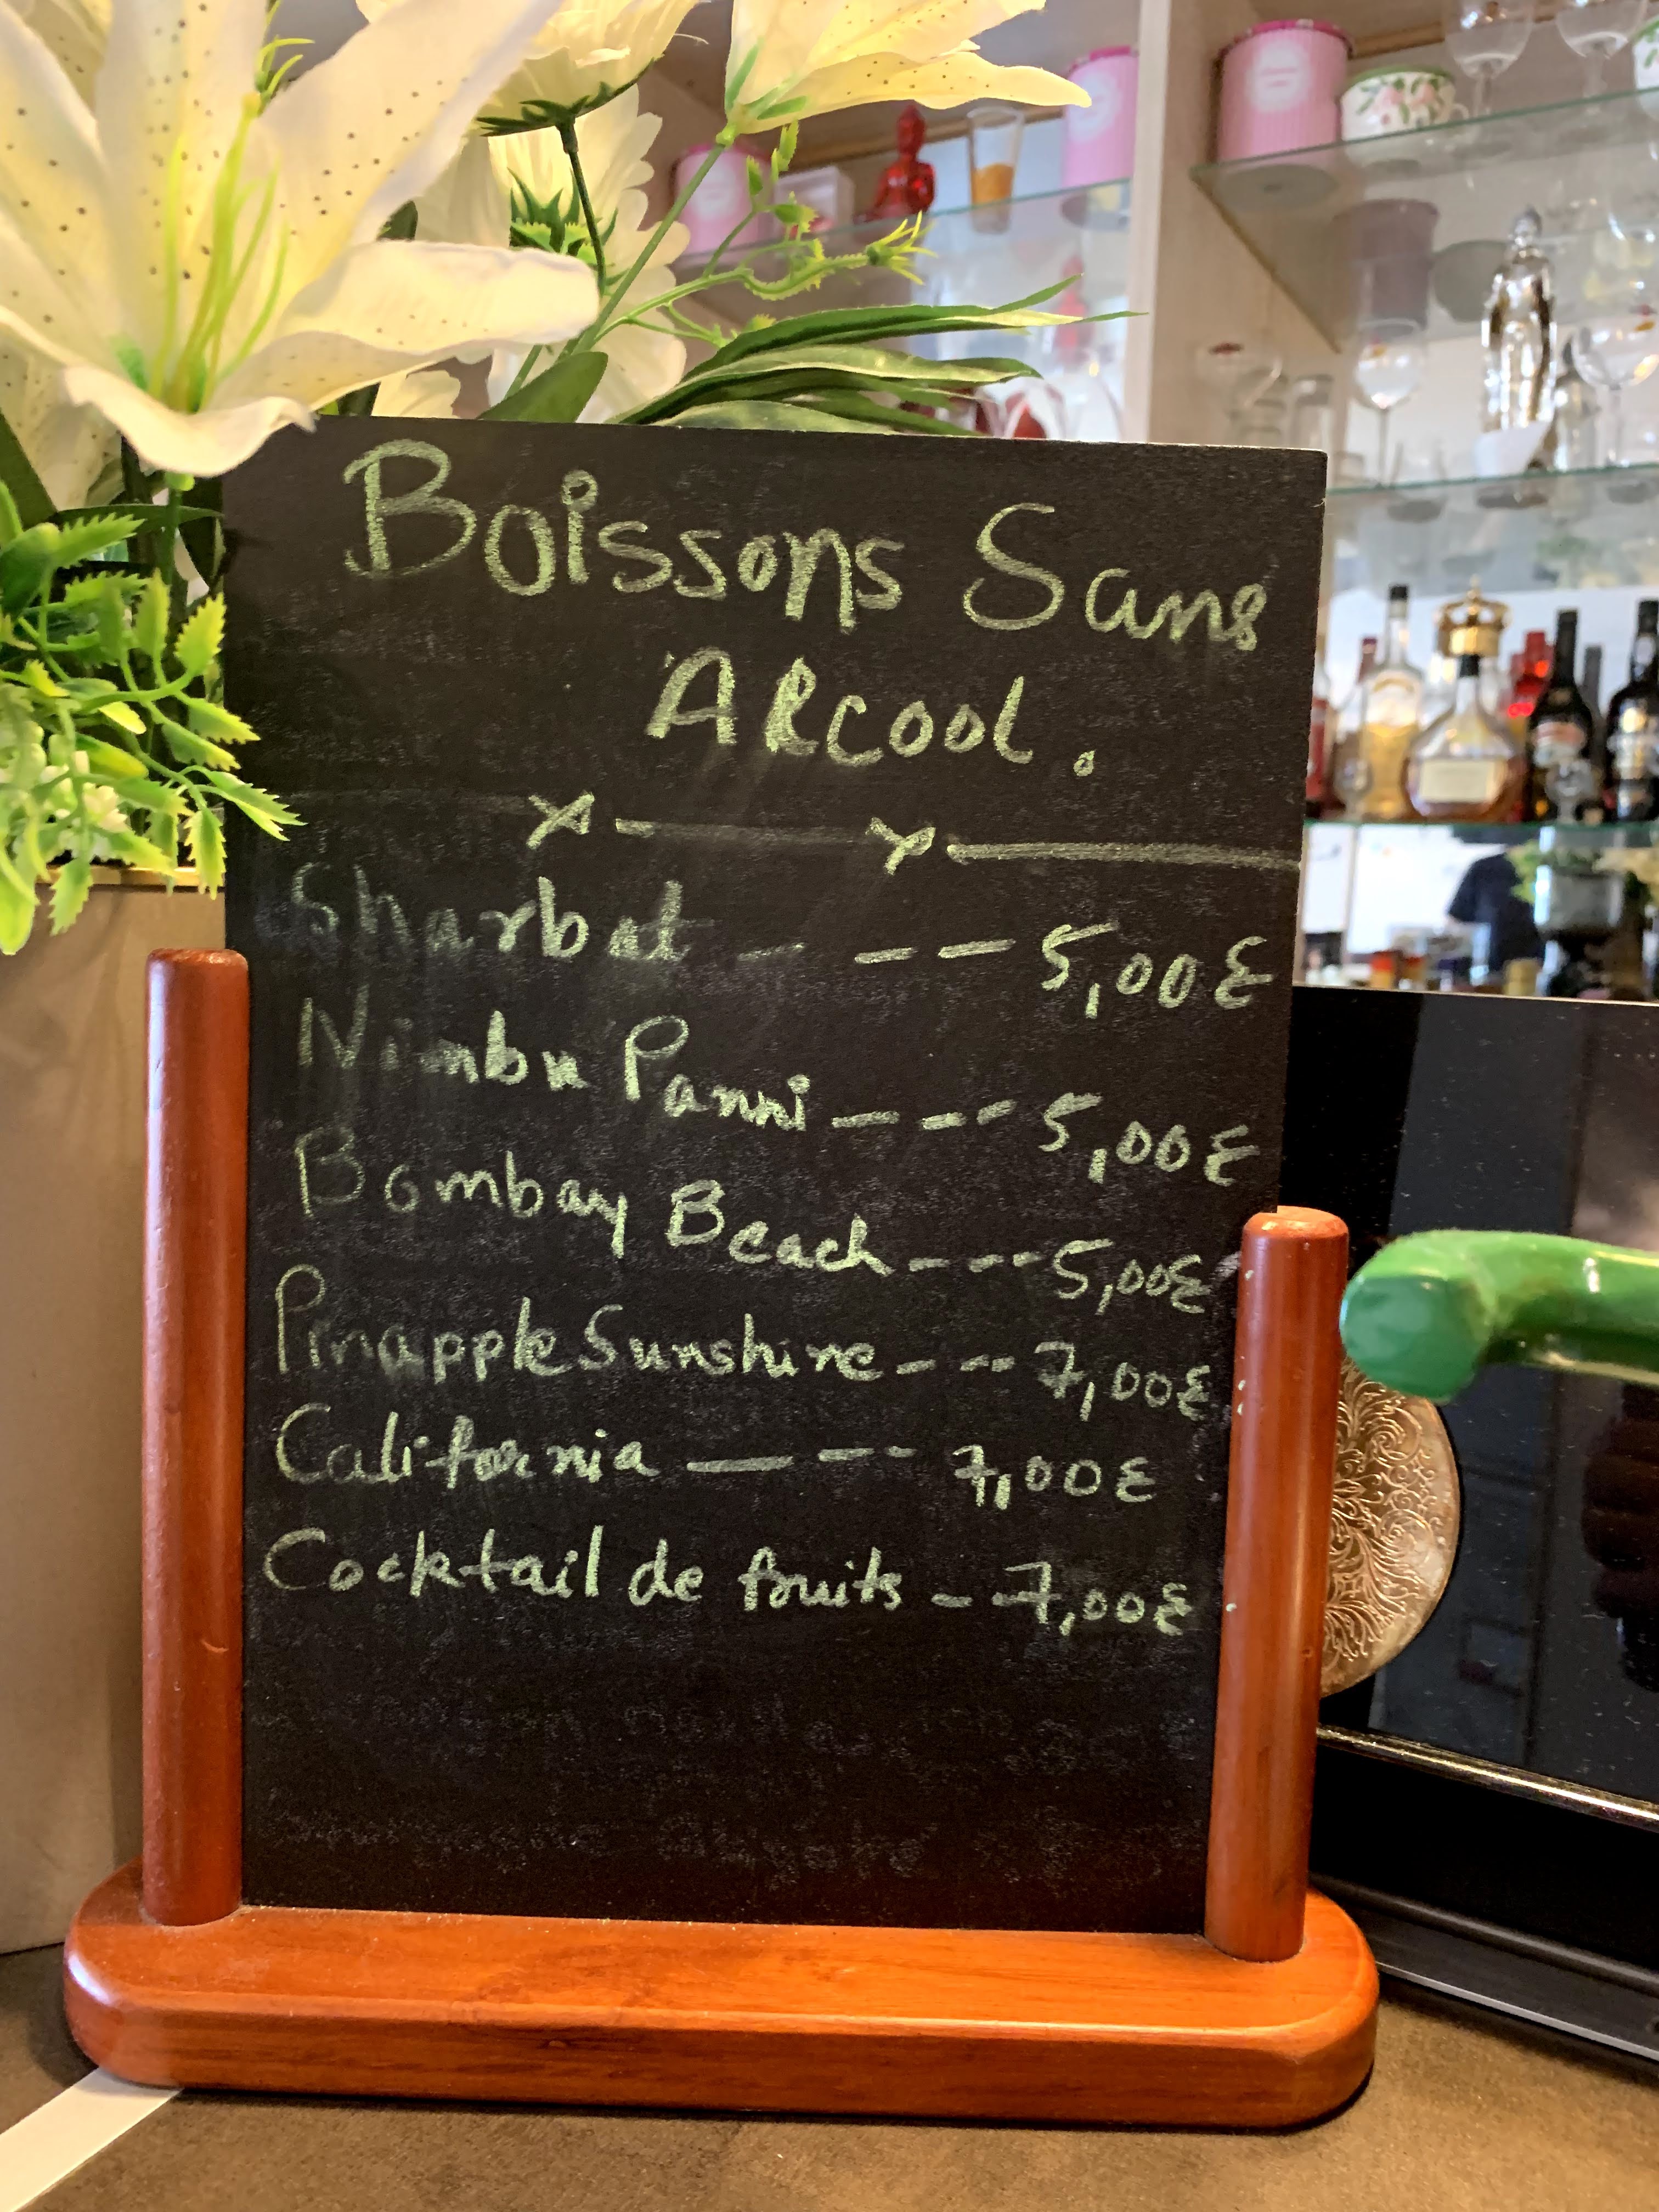 Boissons Sans
ARcool.
x - x
Sharbat - - - 5,00€
Nimbu Panni - - - 5,00€
Bombay Beach - - - 5,00€
Pinapple Sunshine - - - 7,00€
California - - - 7,00€
Cocktail de fruits - - 7,00€